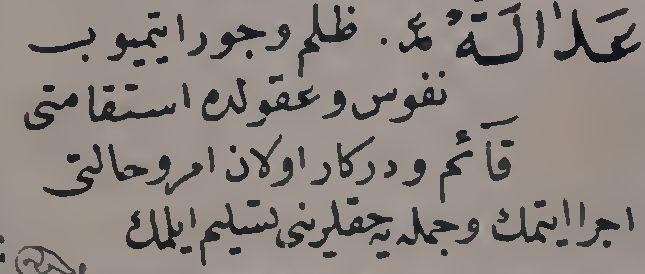 عَدَالَةٌ ع. ظلم وجور ایتمیوب
نفوس وعقولده استقامتی
قآئم ودرکار اولان امر وحالتی
اجرا ایتمك وجمله یه حقلرینی تسلیم ایلمك